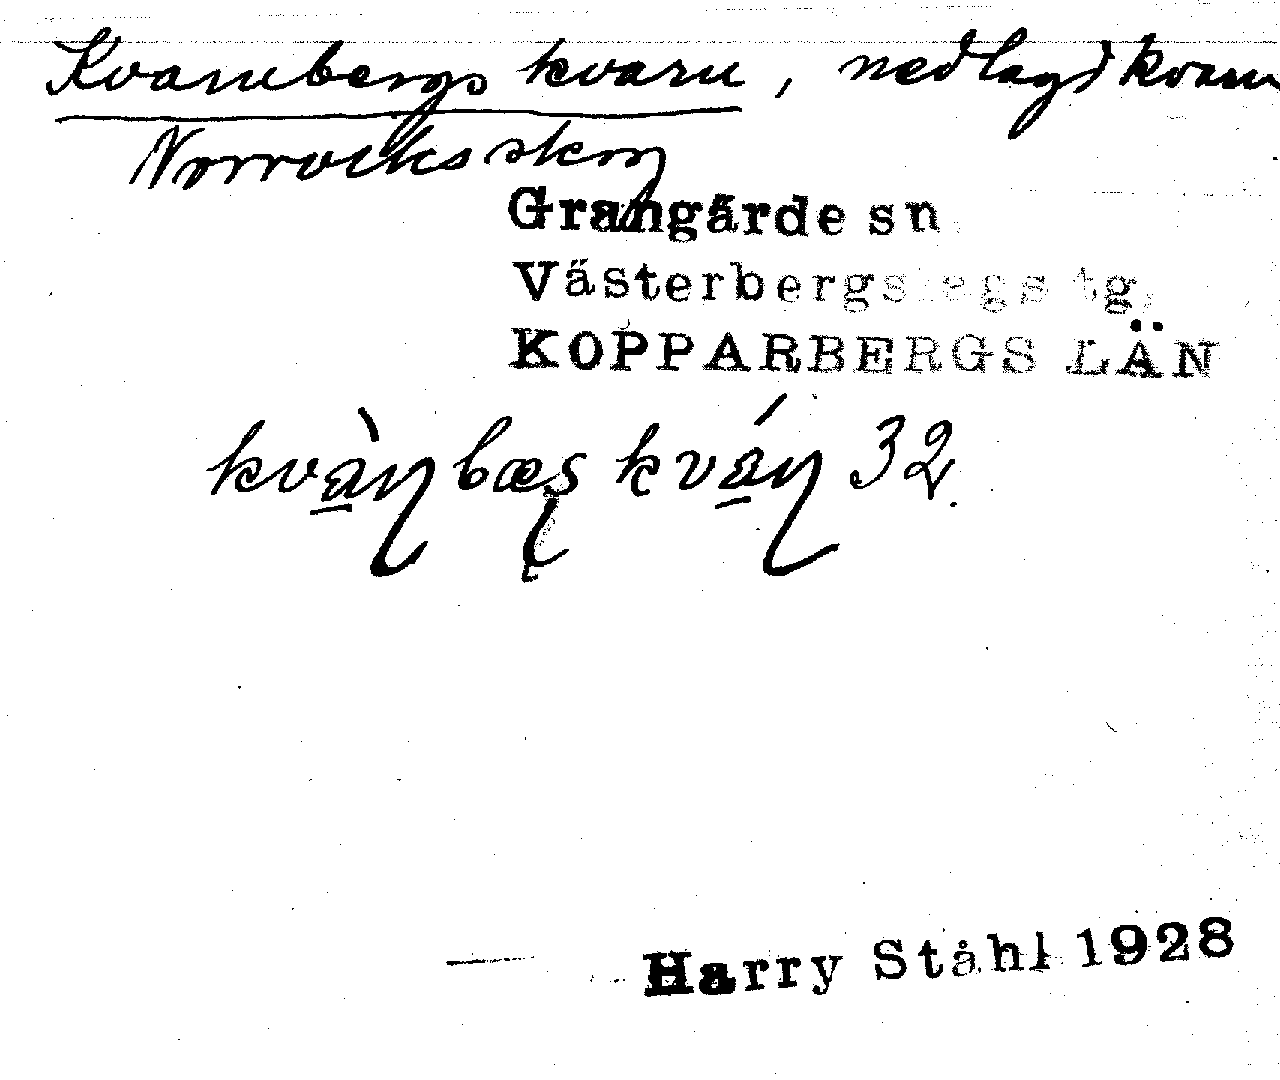 Kvarnbergs kvarn, nedlagd kvarn
Norrviks skog
Grangärde sn
Västerbergslags tg,
KOPPARBERGS LÄN
32.
Harry Ståhl 1928